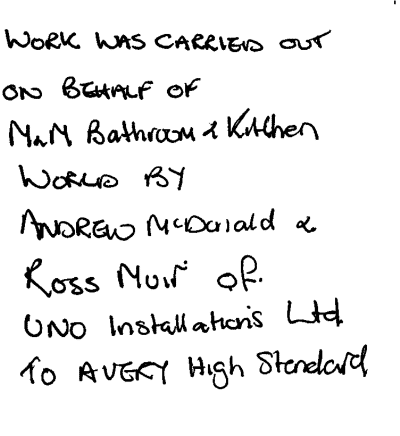 WORK WAS CARRIED OUT
ON BEHALF OF
M&M Bathroom & Kitchen
WORLD BY
ANDREW McDonald &
Ross Muir of.
UNO Installations Ltd.
TO A VERY High Standard